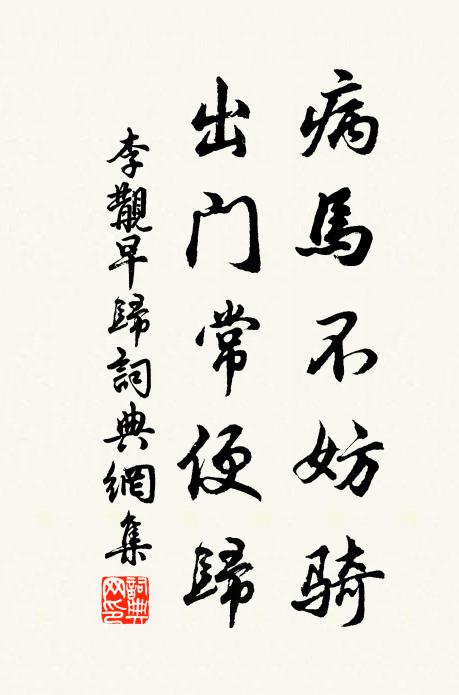 病馬不妨騎
出门常便歸
李觀早歸詞典網集
詞典网印